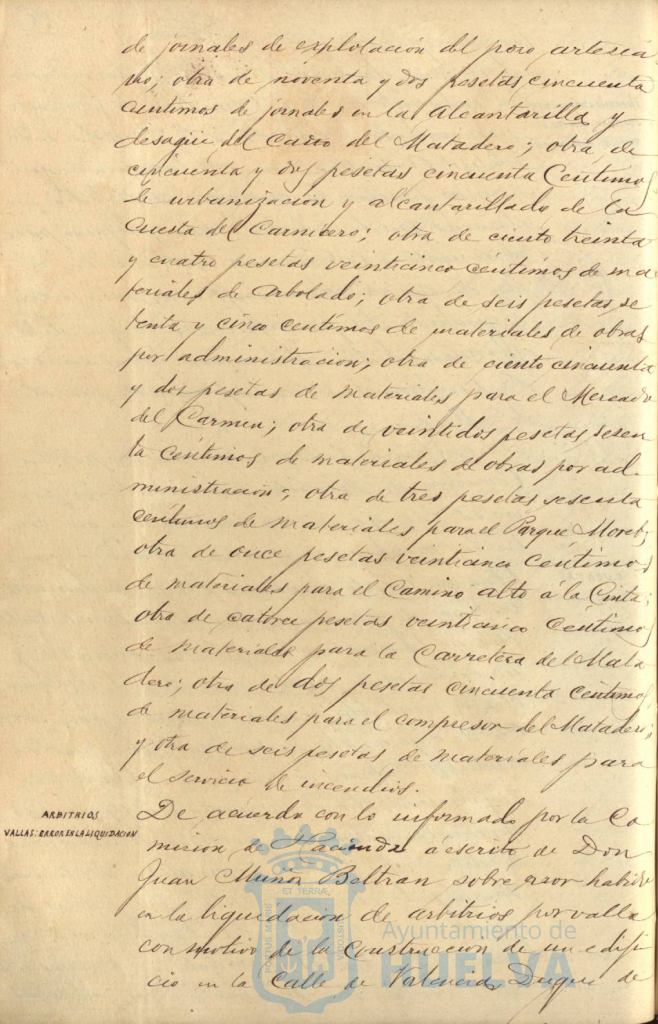 de jornales de explotación del pozo artesia
no; otra de noventa y dos pesetas cincuenta
centimos de jornales en la Alcantarilla y
desagüe del Caño del Matadero; otra de
cincuenta y dos pesetas cincuenta Centimos
de urbanización y alcantarillado de la
Cuesta del Carnicero; otra de ciento treinta
y cuatro pesetas veinticinco céntimos de ma
teriales de Arbolado; otra de seis pesetas se
tenta y cinco centimos de materiales de obras
por administracion; otra de ciento cincuenta
y dos pesetas de materiales para el Mercado
del Carmen; otra de veintidos pesetas sesen
ta céntimos de materiales de obras por ad-
ministración; otra de tres pesetas sesenta
centimos de materiales para el Parque Moret;
otra de once pesetas veinticinco Céntimos
de materiales para el Camino alto á la Cinta;
otra de catorce pesetas veinticinco Centimos
de materiales para la Carretera del Mata
dero; otra de dos pesetas cincuenta céntimos
de materiales para el compresor del Matadero;
y otra de seis pesetas de materiales para
el servicio de incendios.
ARBITRIOS
VALLAS: ERROR EN LA LIQUIDACION
De acuerdo con lo informado por la Co
mision de Hacienda á escrito de Don
Juan Muñoz Beltran sobre error habido
en la liquidacion de arbitrios por valla
con motivo de la construccion de un edifi
cio en la Calle de Valencia, Duque de
Ayuntamiento de
HUELVA